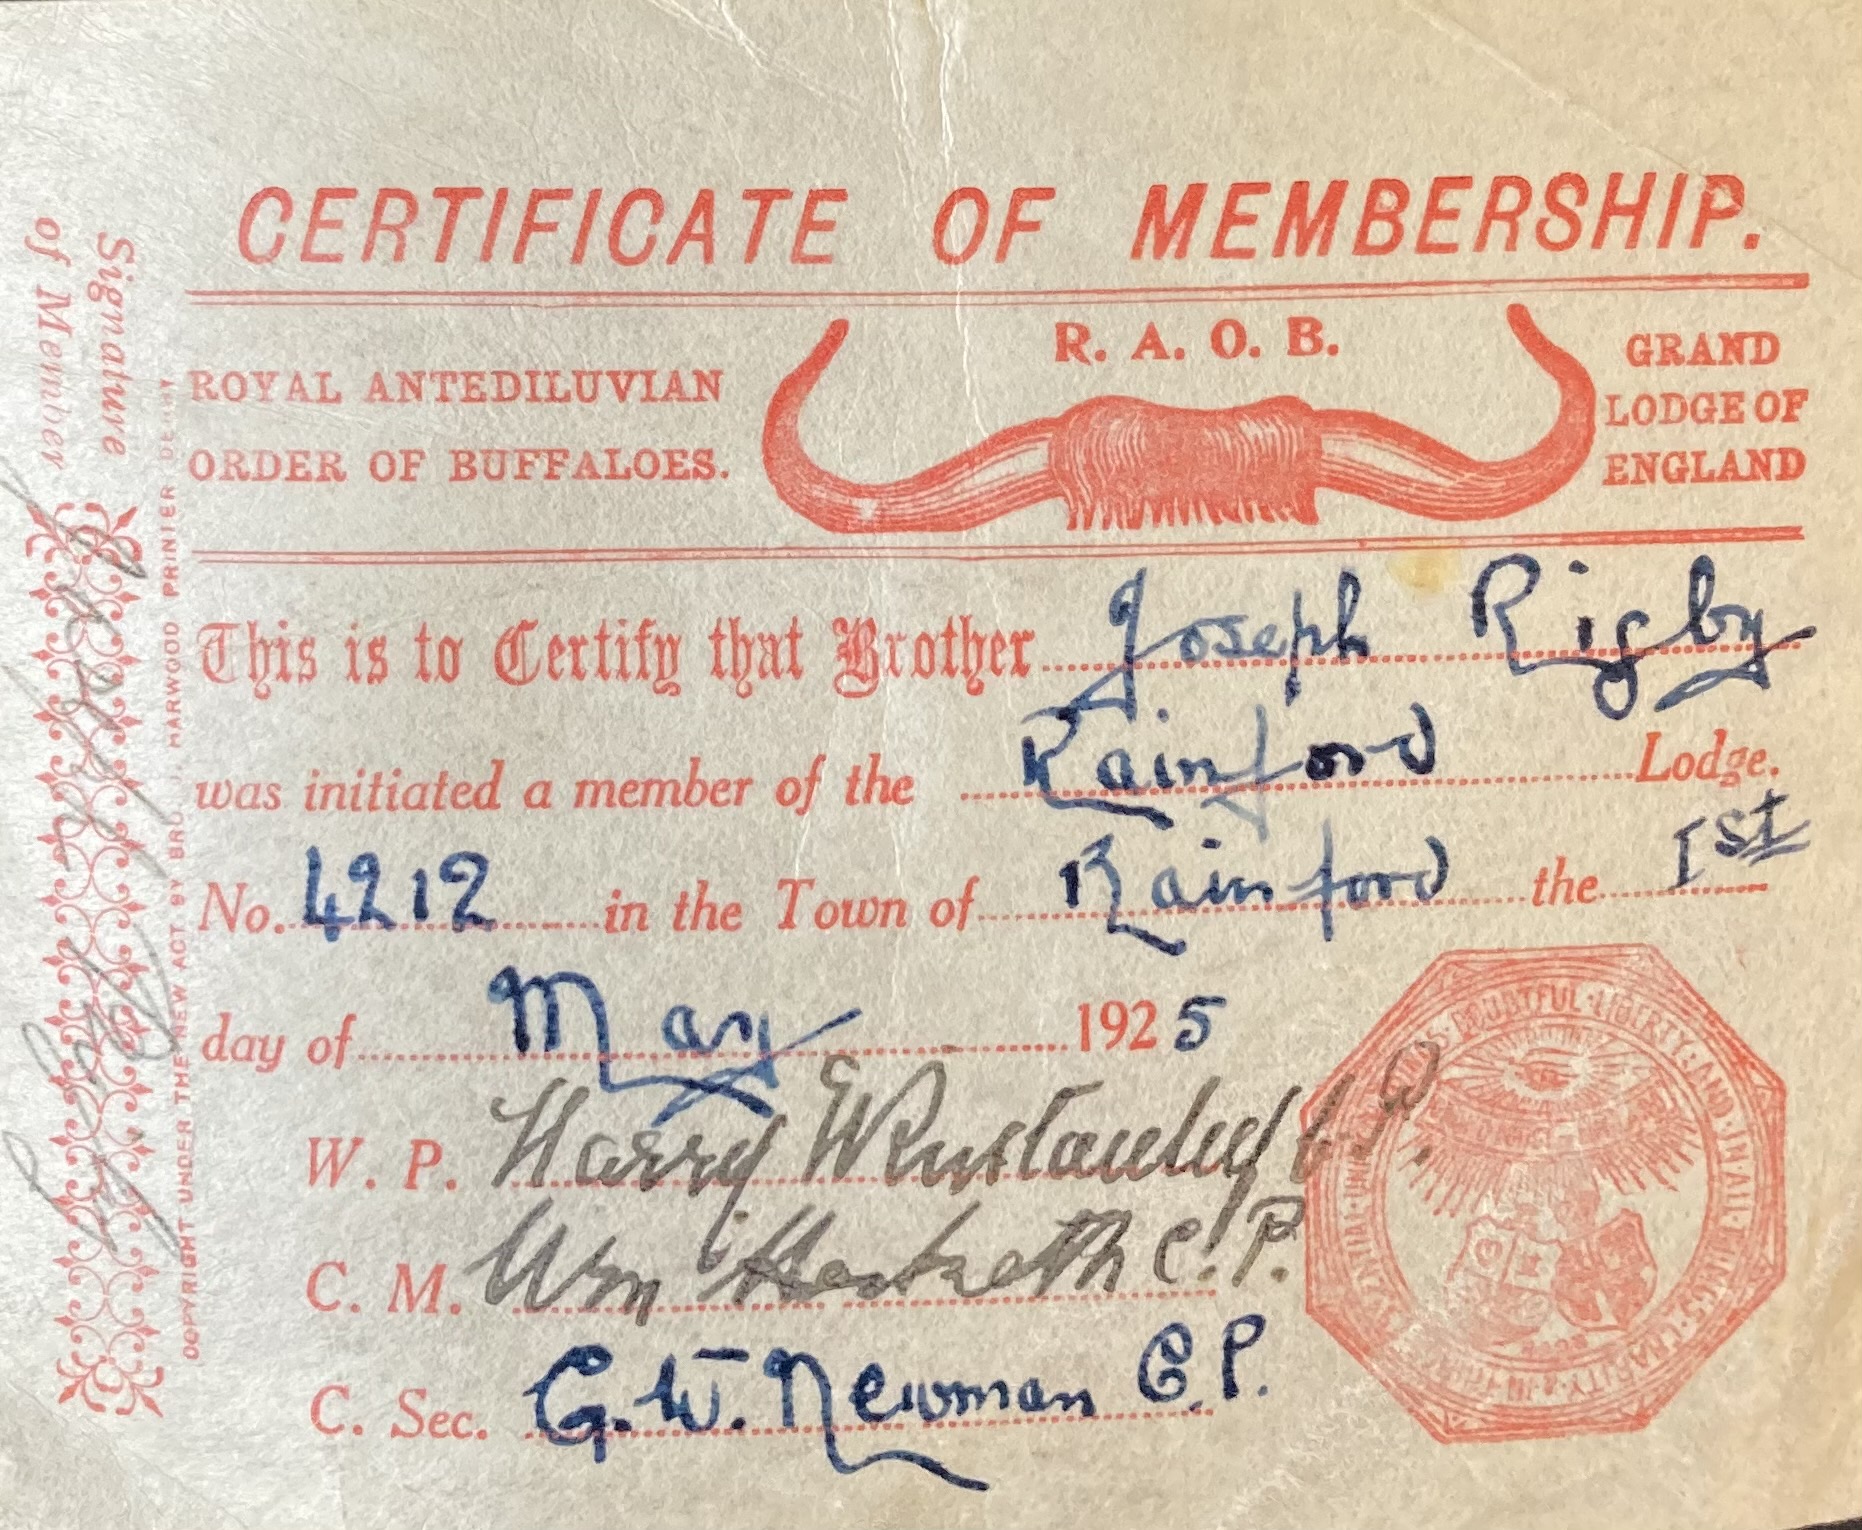 CERTIFICATE OF MEMBERSHIP.
ROYAL ANTEDILUVIAN
ORDER OF BUFFALOES.
R. A. O. B.
GRAND
LODGE OF
ENGLAND
This is to Certify that Brother Joseph Rigby
was initiated a member of the Rainford Lodge.
No. 4212 in the Town of Rainford the 1st
day of May 1925
W. P. Harry Winstanley C.P.
C. M. Wm Hesketh C.P.
C. Sec. G.W. Newman C.P.
Signature
of Member
Joseph Rigby
COPYRIGHT UNDER THE NEW ACT BY BRO. J. HARWOOD PRINTER DERBY
DOUBTFUL · LIBERTY: AND · IN · ALL · THINGS · CHARITY